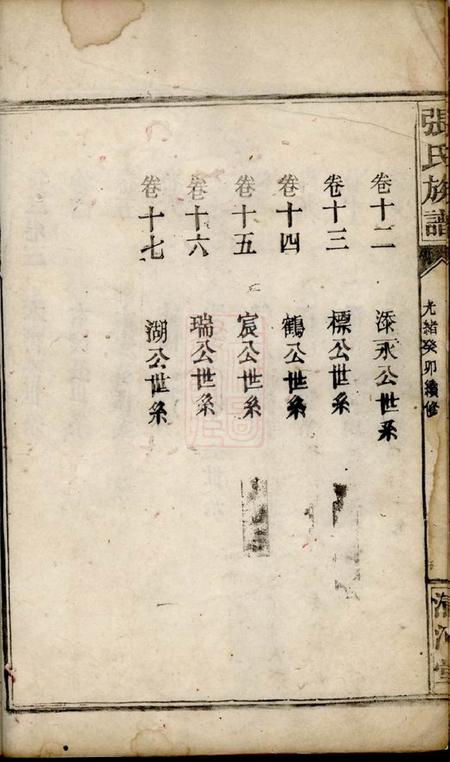 張氏族譜
光緒癸卯續修
清河堂
卷十二 添永公世系
卷十三 標公世系
卷十四 鶴公世系
卷十五 宸公世系
卷十六 瑞公世系
卷十七 湖公世系